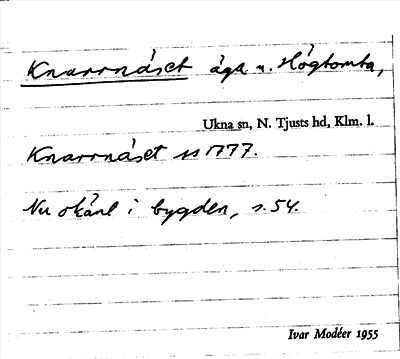 Knarrnäset äga u. Högtomta,
Ukna sn, N. Tjusts hd, Klm. l.
Knarrnäset 1777.
Nu okänt i bygden, s. 54.
Ivar Modéer 1955